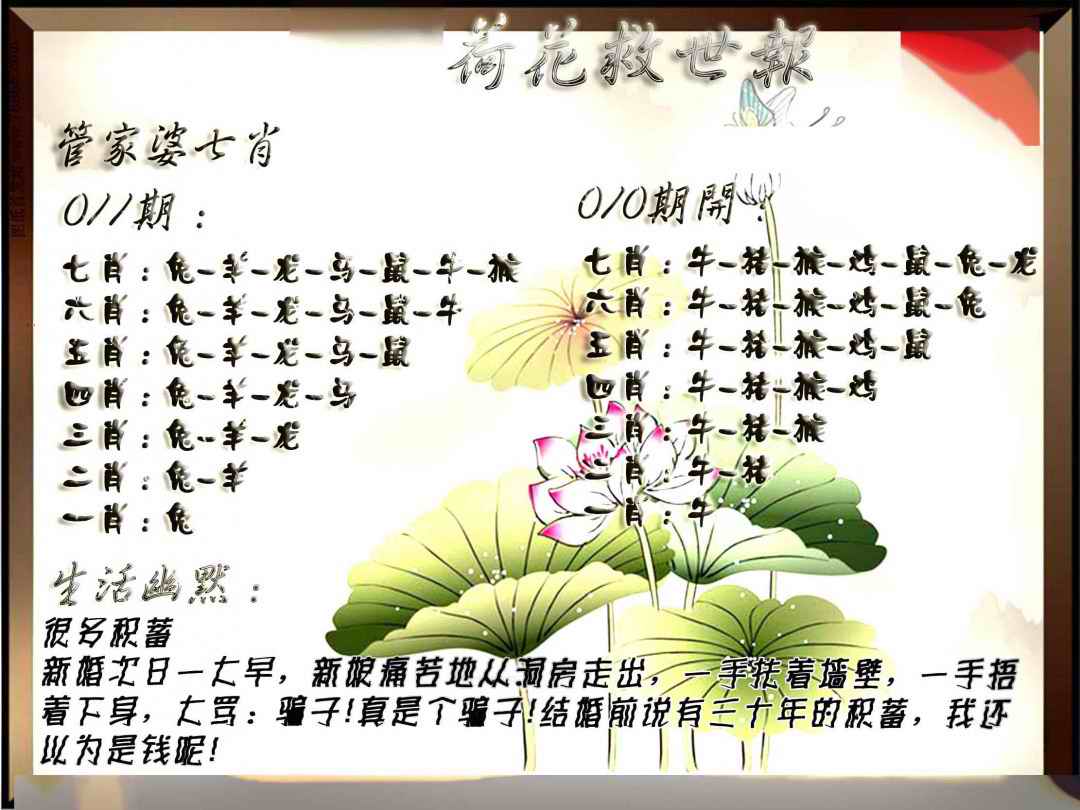 荷花救世報
管家婆七肖
011期：
七肖：兔-羊-龙-马-鼠-牛-猴
六肖：兔-羊-龙-马-鼠-牛
五肖：兔-羊-龙-马-鼠
四肖：兔-羊-龙-马
三肖：兔-羊-龙
二肖：兔-羊
一肖：兔
010期開：
七肖：牛-猪-猴-鸡-鼠-兔-龙
六肖：牛-猪-猴-鸡-鼠-兔
五肖：牛-猪-猴-鸡-鼠
四肖：牛-猪-猴-鸡
三肖：牛-猪-猴
二肖：牛-猪
一肖：牛
生活幽默：
很多积蓄
新婚次日一大早，新娘痛苦地从洞房走出，一手扶着墙壁，一手捂
着下身，大骂：骗子!真是个骗子!结婚前说有三十年的积蓄，我还
以为是钱呢!